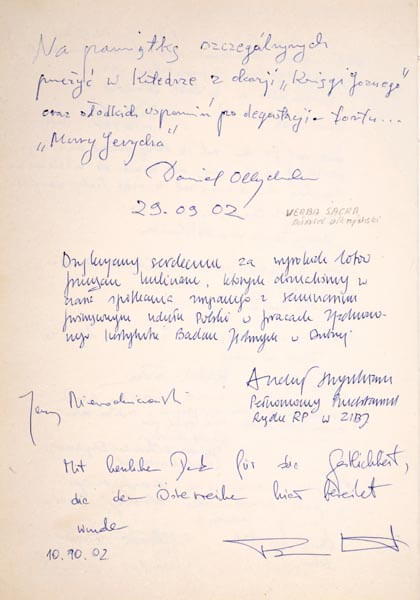 Na pamiątkę szczególnych
przeżyć w Katedrze z okazji „Księgi
oraz słodkich wspomnień po degustacji tortu...
„Mury Jerycha”
Daniel Olbrychski
29.09 02
VERBA SACRA
Daniel Olbrychski
Dziękujemy serdecznie za wysokich lotów
kulinarne, których doznaliśmy w
czasie spotkania związanego z seminarium
poświęconym udziału Polski w pracach Zjednoczo-
nego Instytutu Badań Jądrowych w Dubnej
Jerzy Niewodniczański
Andrzej
Pełnomocny Przedstawiciel
Rządu RP w ZIBJ
Mit herzlichem Dank für die Gastlichkeit,
die dem Österreicher hier bereitet
wurde
10.10.02